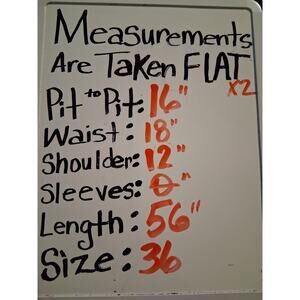 Measurements
Are Taken FLAT
X2
Pit to Pit: 16"
Waist: 18"
Shoulder: 12"
Sleeves: 0"
Length: 56"
Size: 36